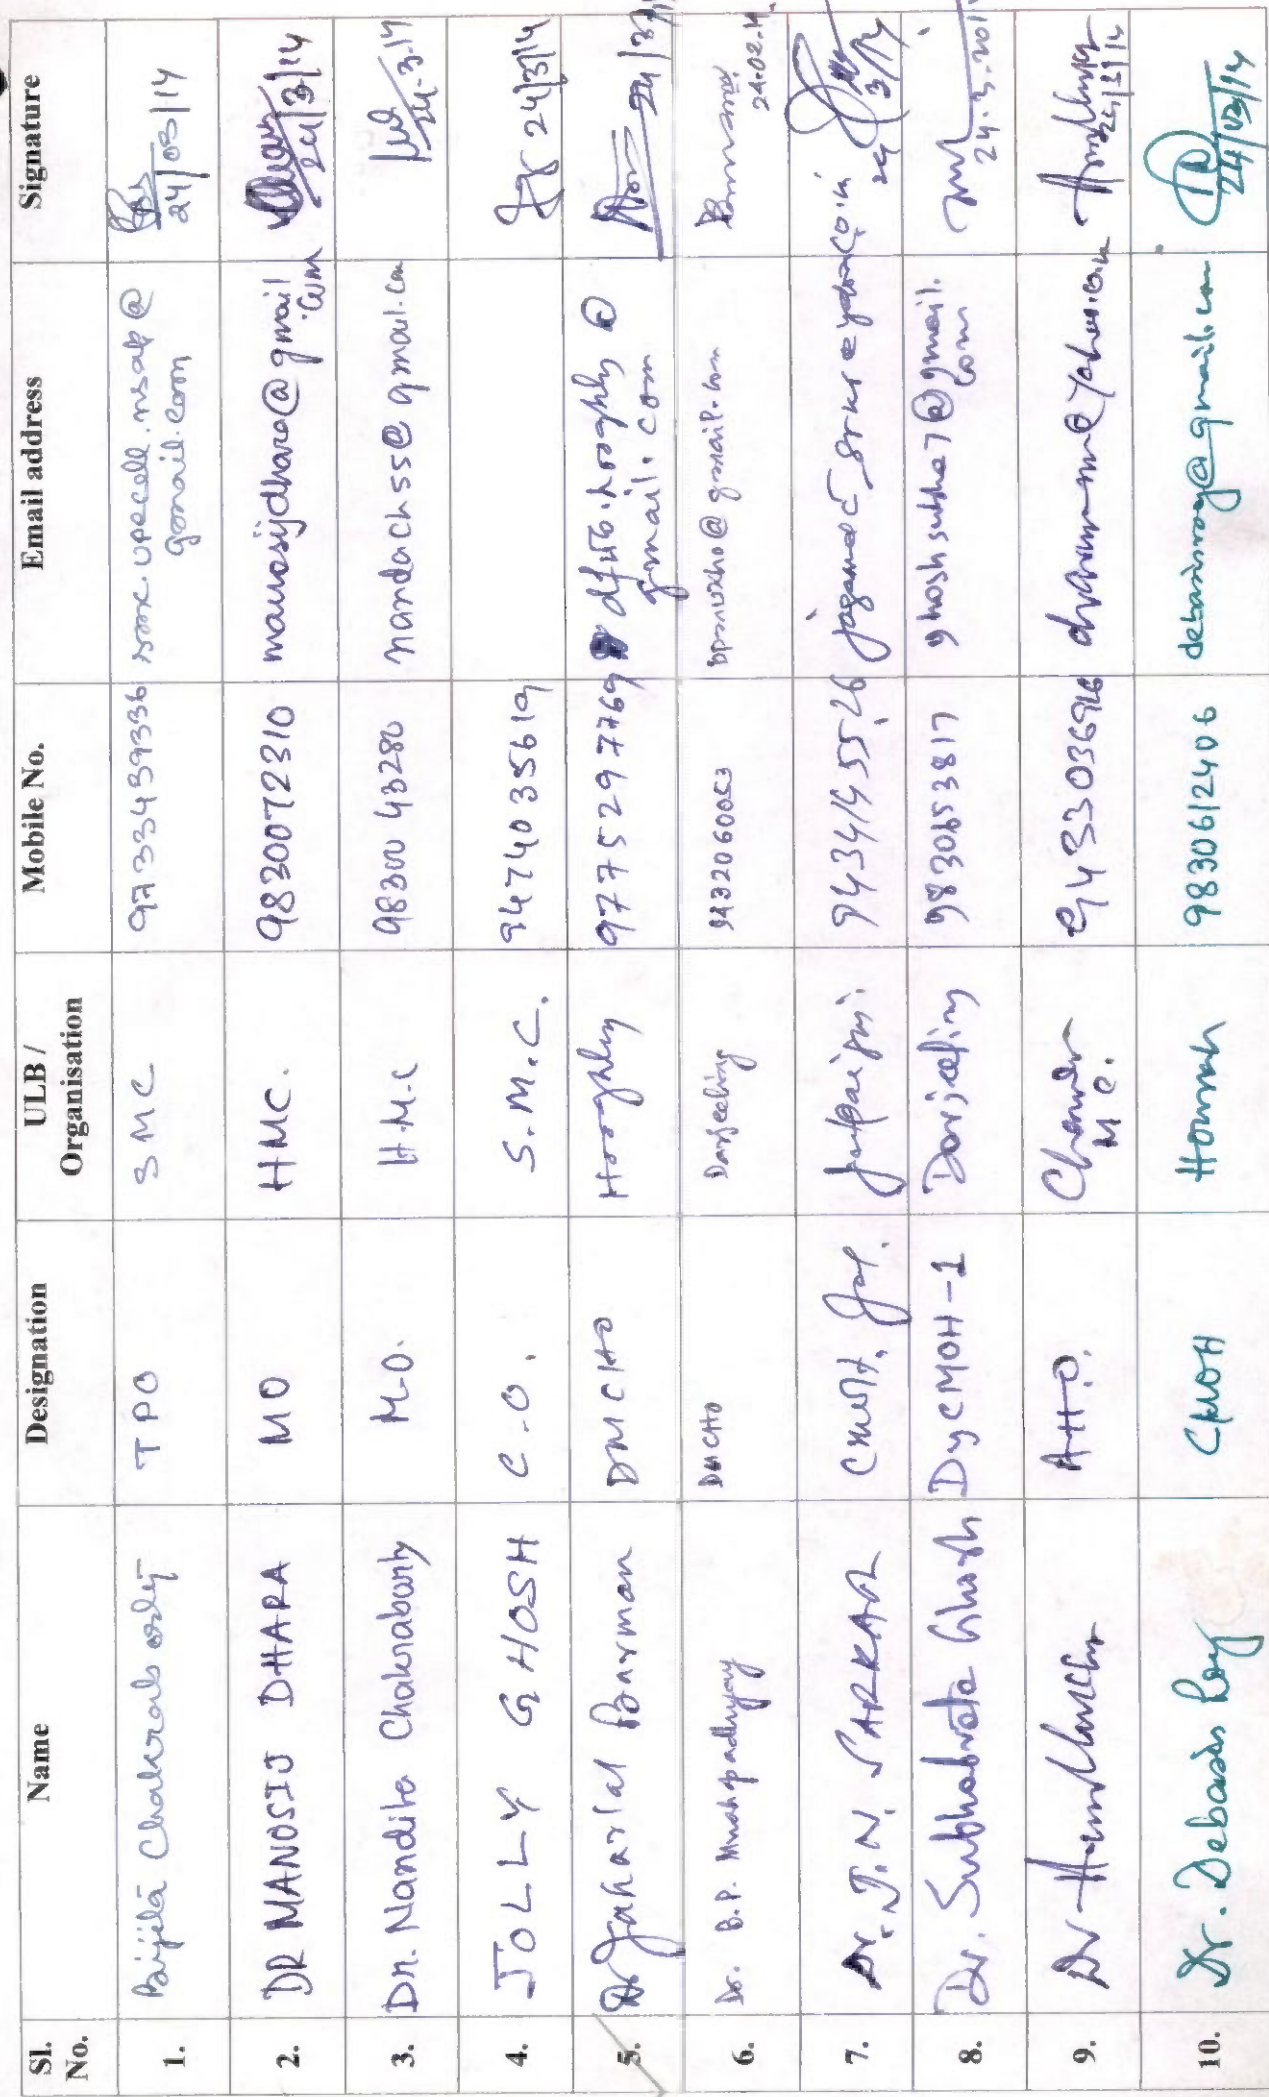 Sl. No. Name Designation ULB / Organisation Mobile No. Email address Signature
1. Chakraborty TPO SMC 9733439336 upecell.nsap@
gmail.com 24/03/14
2. DR MANOSIJ DHARA MO HMC. 9830072310 manosijdhara@gmail
.com 24/3/14
3. Dr. Nandita Chakraborty M.O. H.M.C 98300 43280 nandach55@gmail.com 24.3.14
4. JOLLY GHOSH C.O. S.M.C. 9474035619 24/3/14
5. Dr Jaharlal Barman DMCHO Hooghly hooghly@
gmail.com
6. Dr. B.P. Mukhopadhyay DMCHO Darjeeling 9432060053 @gmail.com
24.02.14
7. Dr. J.N. SARKAR CMOH, Jal. Jalpaiguri. 9434145526 24/3/14
8. Dr. Subhabrata Ghosh DyCMOH-1 Darjeeling 9830653817 ghoshsubha7@gmail.
com 24.3.2014
9. Dr AHO. 24/3/14
10. Dr. Debasis Roy CMOH Howrah 9830612406 debasisroy@gmail.com 24/03/14